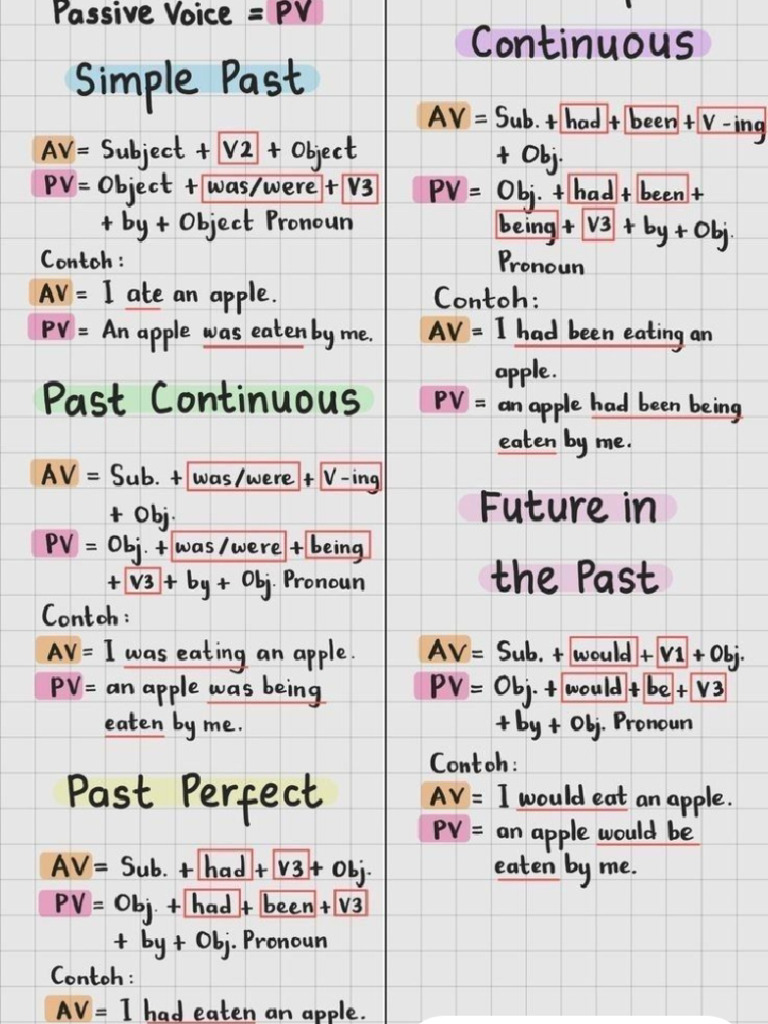 Passive Voice = PV
Simple Past
AV = Subject + V2 + Object
PV = Object + was/were + V3
+ by + Object Pronoun
Contoh:
AV = I ate an apple.
PV = An apple was eaten by me.
Past Continuous
AV = Sub. + was/were + V-ing
+ Obj.
PV = Obj. + was/were + being
+ V3 + by + Obj. Pronoun
Contoh:
AV = I was eating an apple.
PV = an apple was being
eaten by me.
Past Perfect
AV = Sub. + had + V3 + Obj.
PV = Obj. + had + been + V3
+ by + Obj. Pronoun
Contoh:
AV = I had eaten an apple.
Continuous
AV = Sub. + had + been + V-ing
+ Obj.
PV = Obj. + had + been +
being + V3 + by + Obj.
Pronoun
Contoh:
AV = I had been eating an
apple.
PV = an apple had been being
eaten by me.
Future in
the Past
AV = Sub. + would + V1 + Obj.
PV = Obj. + would + be + V3
+ by + Obj. Pronoun
Contoh:
AV = I would eat an apple.
PV = an apple would be
eaten by me.